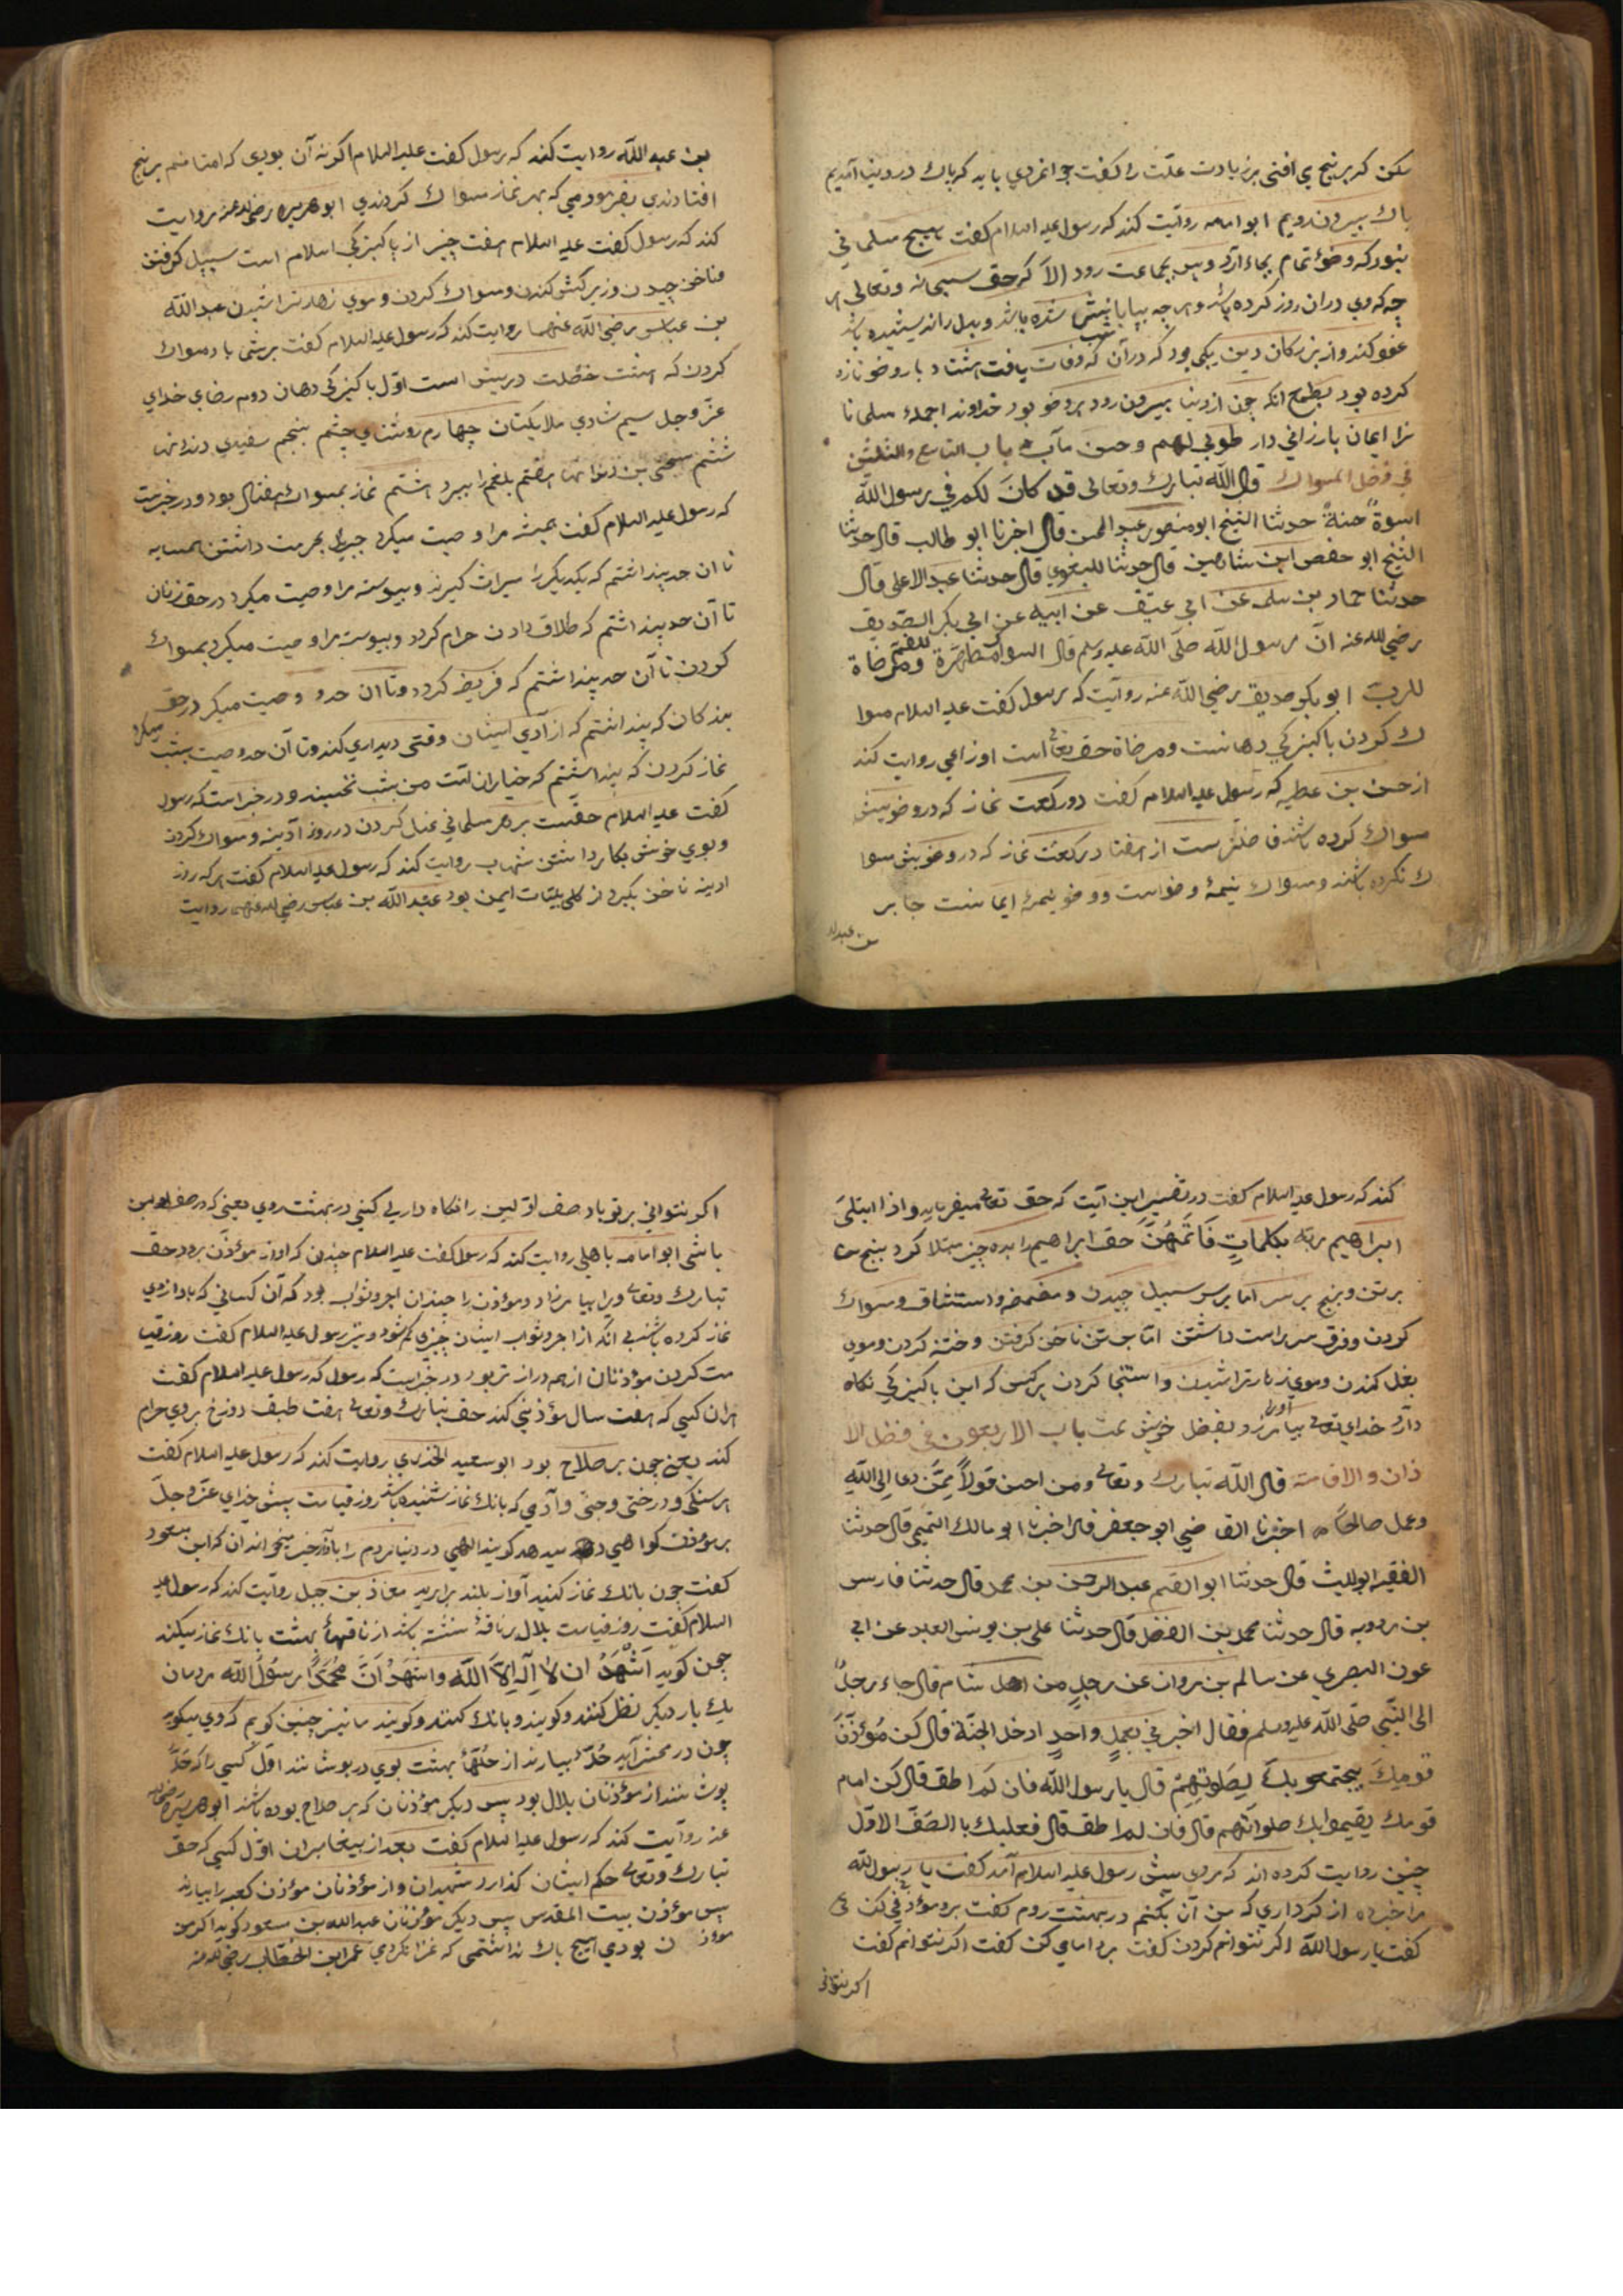 مکن که برنج می افتی بزیادت علت را گفت جوانمردی باید که پاک در دنیا آمدیم
پاک بیرون رویم ابو امامه روایت کند که رسول علیه السلام گفت هیچ مسلمانی
نبود که وضوء تمام بجاء آرد و پس بجماعت رود الا که حق سبحانه وتعالی هر
چه که وی دران روز کرده باشد وهر چه بپایها بنشش شده باشد وبدل اندیشیده باشد
عفو کند واز بزرکان دین یکی بود که در آن شب که وفات یافت هشتاد بار وضو تازه
کرده بود بطمع انکه چون از دنیا بیرون رود بر وضو بود خداوند اجمله مسلمانا
نرا ایمان بارزانی دار طوبی لهم وحسن مآب باب التاسع والثلثین
فی فضل المسواک قال الله تبارک وتعالی قد کان لکم فی رسول الله
اسوة حسنة حدثنا الشیخ ابو منصور عبد المحسن قال اخبرنا ابو طالب قال حدثنا
الشیخ ابو حفص ابن شاهین قال حدثنا للبغوی قال حدثنا عبد الاعلی قال
حدثنا حماد بن سلمه عن ابی عتیق عن ابیه عن ابی بکر الصدیق
رضی الله عنه ان رسول الله صلی الله علیه وسلم قال السواک مطهرة للفم ومرضاة
للرب ابو بکر صدیق رضی الله عنه روایت که رسول گفت علیه السلام مسوا
ک کردن پاکیزکی دهانست ومرضاة حق تعالی است اوزاعی روایت کند
از حسن بن عطیه که رسول علیه السلام گفت دو رکعت نماز که در وضویش
سواک کرده باشد فاضلترست از هفتاد رکعت نماز که در وضویش سوا
ک نکرده باشند وسواک نیمهٔ وضواست ووضو نیمهٔ ایمانست جابر
بن عبدالله
بن عبد الله روایت کند که رسول گفت علیه السلام اکر نه آن بودی که امتانم برنج
افتادندی بفرمودمی که بهر نماز سواک کردندی ابو هریره رضی الله عنه روایت
کند که رسول گفت علیه السلام هفت چیز از پاکیزکی اسلام است سبیل کرفتن
وناخن چیدن وزیر کش کندن وسواک کردن وموی زهار تراشیدن عبد الله
بن عباس رضی الله عنهما روایت کند که رسول علیه السلام گفت برشما باد مسواک
کردن که هشت خصلت درینش است اول پاکیزکی دهان دوم رضای خدای
عز وجل سیم شادی ملایکتان چهارم روشنای چشم پنجم سفیدی دندانها
ششم سختی بن دندانها هفتم بلغم را ببرد هشتم نماز بمسواک بهفتاد بود ودر خبرست
که رسول علیه السلام گفت همیشه مرا وصیت میکرد جبریل بحرمت داشتن همسایه
تا ان حد پنداشتم که یکدیگر را میراث گیرند وپیوسته مرا وصیت میکرد در حق زنان
تا آن حد پنداشتم که طلاق دادن حرام کردد وپیوسته مرا وصیت میکرد بمسواک
کردن تا آن حد پنداشتم که فریضه کردد وتا ان حد وصیت میکرد در حق
بندکان که پنداشتم که از آدی ایشان وقتی دیداری کند وتا آن حد وصیت بشب میکرد
نماز کردن که پنداشتم که خیاران امت من بشب نخسپند ودر خبراست که رسول
گفت علیه السلام حقست بر هر مسلمانی غسل کردن در روز آدینه وسواک کردن
وبوی خوش بکار داشتن شهاب روایت کند که رسول علیه السلام گفت هر که روز
ادینه ناخن بگیرد از کل بلیات ایمن بود عبد الله بن عباس رضی الله عنهما روایت
کند که رسول علیه السلام گفت در تفسیر این آیت که حق تعالی میفرماید واذا ابتلی
ابراهیم ربه بکلمات فاتمهن حق ابراهیم را بده چیز مبتلا کرد پنج
بر تن وپنج بر سر اما بر سر سبیل چیدن ومضمضه واستنشاق وسواک
کردن وفرق سر راست داشتن اما بر تن ناخن کرفتن وختنه کردن وموی
بغل کندن وموی زهار تراشیدن واستنجا کردن هر کس که این پاکیزکی نگاه
دارد خدای تعالی بیامرزد اورا بفضل خویش تمت باب الاربعون فی فضل الا
ذان والاقامة قال الله تبارک وتعالی ومن احسن قولا ممن دعا الی الله
وعمل صالحا اخبرنا القاضی ابو جعفر قال اخبرنا ابو مالک التمیمی قال حدثنا
الفقیه ابو اللیث قال حدثنا ابو القسم عبد الرحمن بن محمد قال حدثنا فارس
بن مردویه قال حدثنا محمد بن الفضل قال حدثنا علی بن یونس العبد عن ابی
عون البصری عن سالم بن مروان عن رجل من اهل شام قال جاء رجل
الی النبی صلی الله علیه وسلم فقال اخبرنی بعمل واحد ادخل الجنة قال کن مؤذن
قومک یجتمعو بک لصلوتهم قال یا رسول الله فان لم اطق قال کن امام
قومک یقیموا بک صلواتهم قال فان لم اطق قال فعلیک باالصف الاول
چنین روایت کرده اند که مردی پیش رسول علیه السلام آمد گفت یا رسول الله
مرا خبر ده از کرداری که من آن بکنم در بهشت روم گفت برو مؤذنی کن
گفت یا رسول الله اکر نتوانم کردن گفت برو امامی کن گفت اکر نتوانم گفت
اکر نتوانی
اکر نتوانی بر تو باد صف اولین را نگاه دار یعنی در بهشت روی یعنی که در صف اولین
باشی ابو امامه باهلی روایت کند که رسول گفت علیه السلام چندن که اواز مؤذن برود حق
تبارک وتعالی ویرا بیامرزد ومؤذن را چندان اجر وثواب بود که آن کسانی که باواز وی
نماز کرده باشند بی انکه از اجر وثواب ایشان چیزی کم شود ونیز رسول علیه السلام گفت روز قیا
مت کردن مؤذنان از همه دراز تر بود در خبراست که رسول که رسول علیه السلام گفت
هران کسی که هفت سال مؤذنی کند حق تبارک وتعالی هفت طبقه دوزخ بر وی حرام
کند یعنی چون بر صلاح بود ابو سعید الخدری روایت کند که رسول علیه السلام گفت
هر سنکی ودرختی وجنی وآدمی که بانک نماز شنیده باشد روز قیامت پیش خدای عز وجل
بر مؤذن کواهی دهد گویند الهی در دنیا مردم را باواز خیر میخواند ان که ابن مسعود
گفت چون بانک نماز کنید آواز بلند برارید معاذ بن جبل روایت کند که رسول علیه
السلام گفت روز قیامت بلال بر ناقهٔ نشسته باشد از ناقهاء بهشت بانک نماز میکند
چون کوید اشهد ان لا اله الا الله واشهد ان محمدا رسول الله مردمان
یک بار دیکر نظر کنند وکویند وبانک کنند وکویند ما نیز چنین کویم که وی میکوید
چون در محشر آید حلهٔ بیارند از حلهاء بهشت بوی در پوشانند اول کسی را که حله
پوشانند از مؤذنان بلال بود پس دیکر مؤذنان که بر صلاح بوده باشند ابو هریره رضی الله
عنه روایت کند که رسول علیه السلام گفت بعد از پیغامبران اول کسی که حق
تبارک وتعالی حکم ایشان کذارد شهیدان واز مؤذنان مؤذن کعبه را بیارند
پس مؤذن بیت المقدس پس دیکر مؤذنان عبد الله بن مسعود کوید اکر من
مؤذن بودی هیچ باک نداشتمی که غزا نکردمی عمر ابن الخطاب رضی الله عنه